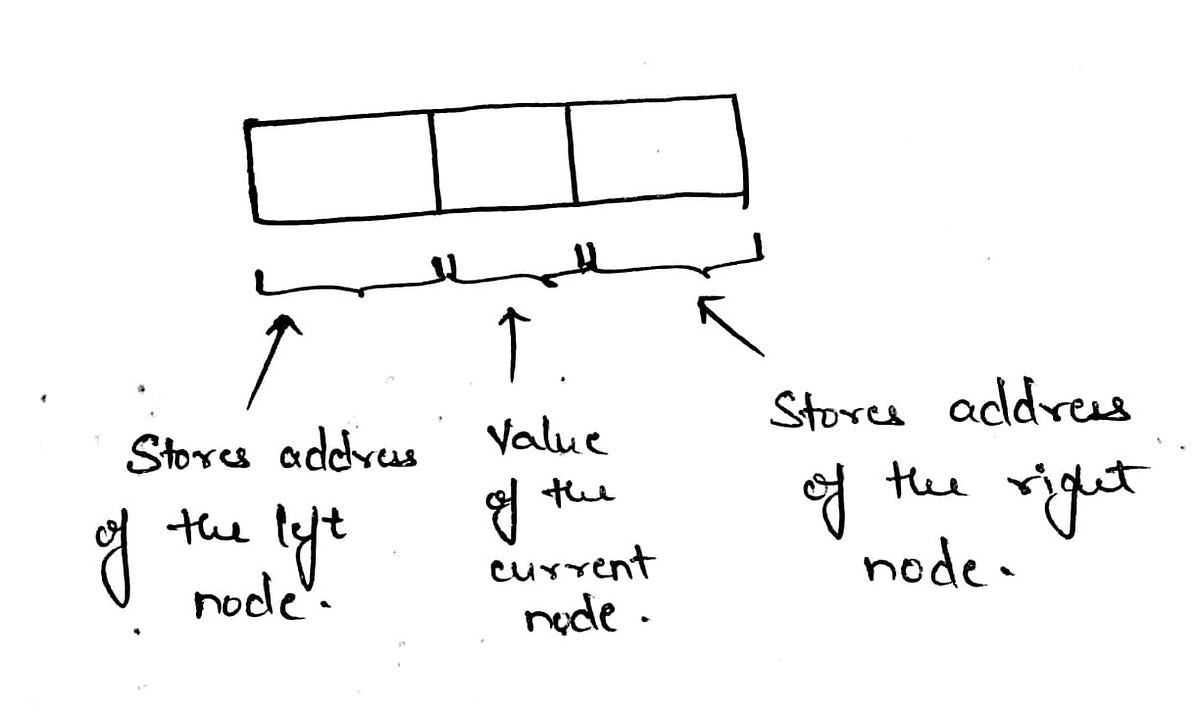 Stores address
of the left
node.
Value
of the
current
node.
Stores address
of the right
node.